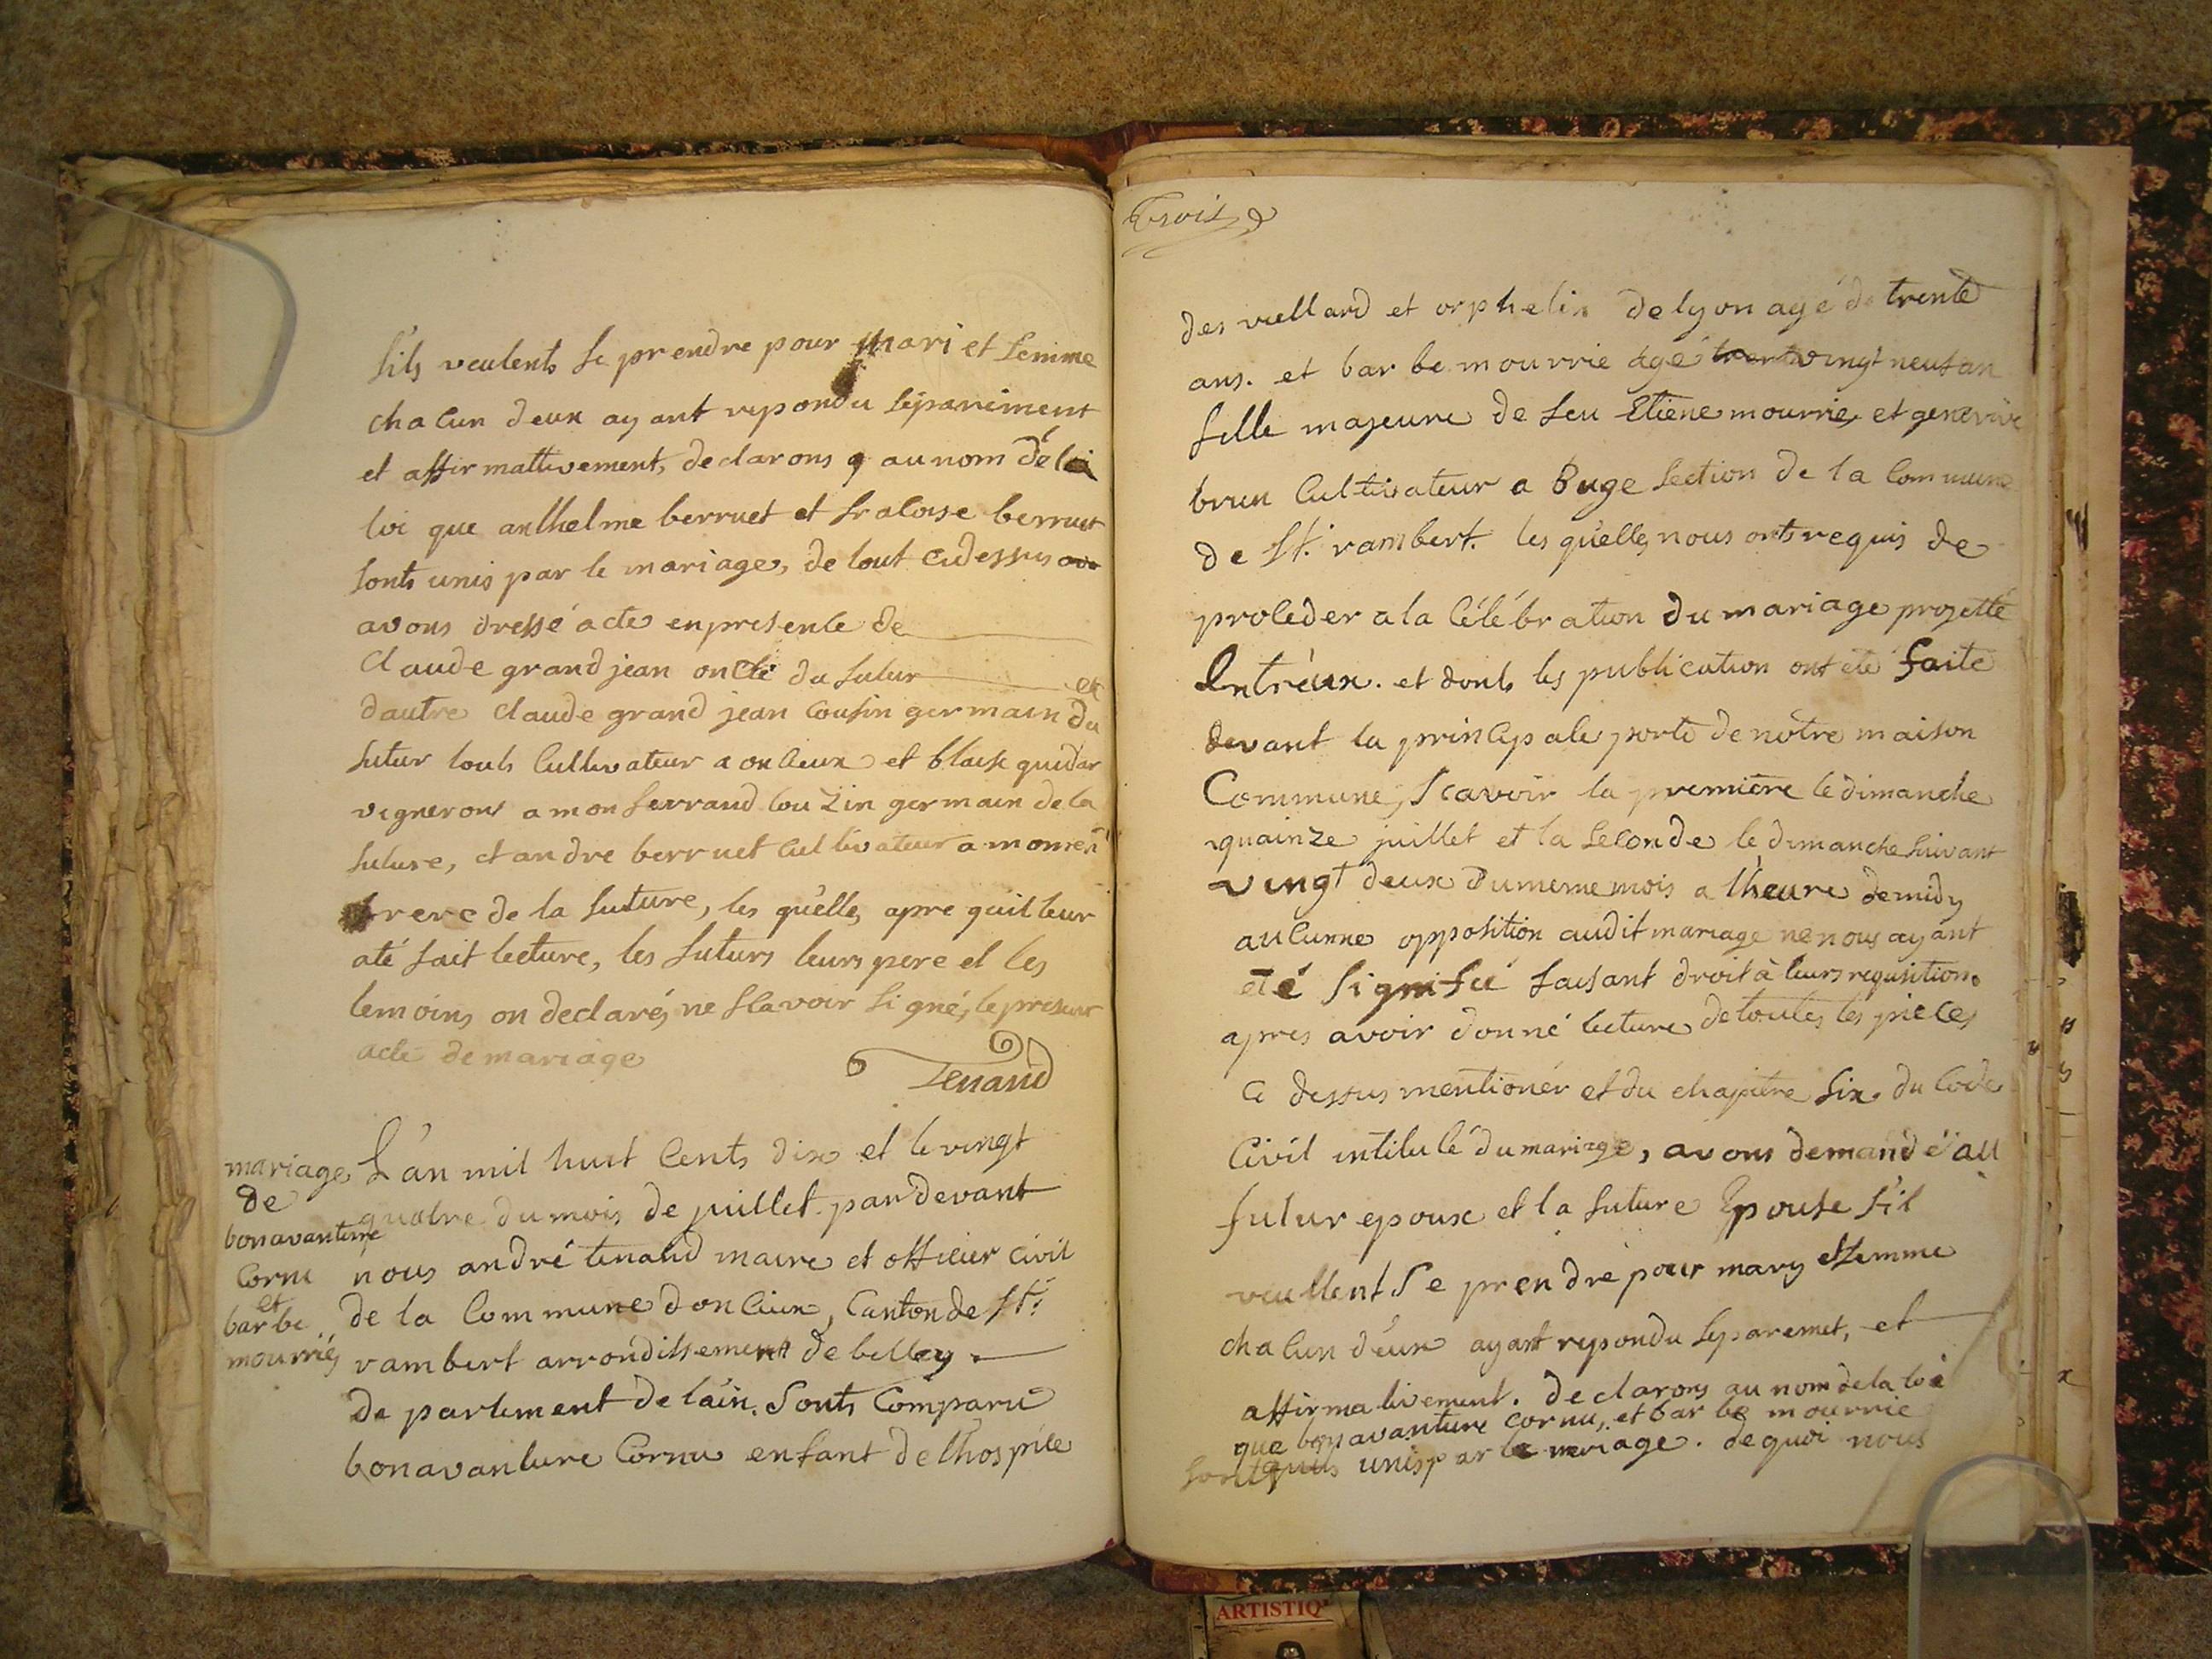 s'ils veulents se prendre pour mari et femme
chacun deux ayant repondu séparément
et affirmattivement, declarons q au nom dé la
loi que anthelme berruet et fracoise berruet
sonts unis par le mariage, de tout cidessus
avons dressé acte en presence de
Claude grand jean oncle du futur et
dautre claude grand jean cousin germain du
futur touts cultivateur a oncieux et blaise guidar
vignerons a monferrand couzin germain de la
future, et andre berruet cultivateur a
frere de la future, les quelle, apre quil leur
a té fait lecture, les futurs leurs pere et les
temoins on declarés ne scavoir signé, le present
acte de mariage
Tenand
mariage
de
bonavanture
Cornu
et
barbe
mourrié
L'an mil huit cents dix et le vingt
quatre du mois de juillet. par devant
nous andré tenand maire et officier civil
de la commune doncieux, canton de St.
rambert arrondissement de belley.
de partement de l'ain. Sonts comparu
bonavanture Cornu enfant de lhospice
Trois
des viellard et orphelin de lyon agé de trente
ans. et barbe mourrie agé vingt neuf an
fille majeure de feu Etiene mourrie, et genevive
brun cultivateur a Buge section de la commune
de St. rambert. les quelle, nous onts requis de
proceder a la célébration du mariage projetté
Entréux. et donts les publication ont été faite
devant la principale porte de notre maison
Commune, Scavoir la première le dimanche
quainze juillet et la seconde le dimanche suivant
vingt deux du meme mois a lheure de midy
aucunne opposition audit mariage ne nous ayant
été Signifié faisant droit à leurs requsition.
apres avoir donné lecture de toutes les pieces
ci dessus mentionér et du chapitre six. du code
Civil intilulé du mariage, avons demandé au
futur epoux et la future Epouse s'il
veullent Se prendre pour mary et femme
chacun d'eux ayant repondu separemet, et
affirmativement. declarons au nom de la loi
que bonavanture cornu, et barbe mourrie
sont unis par le mariage. de quoi nous
ARTISTIQ